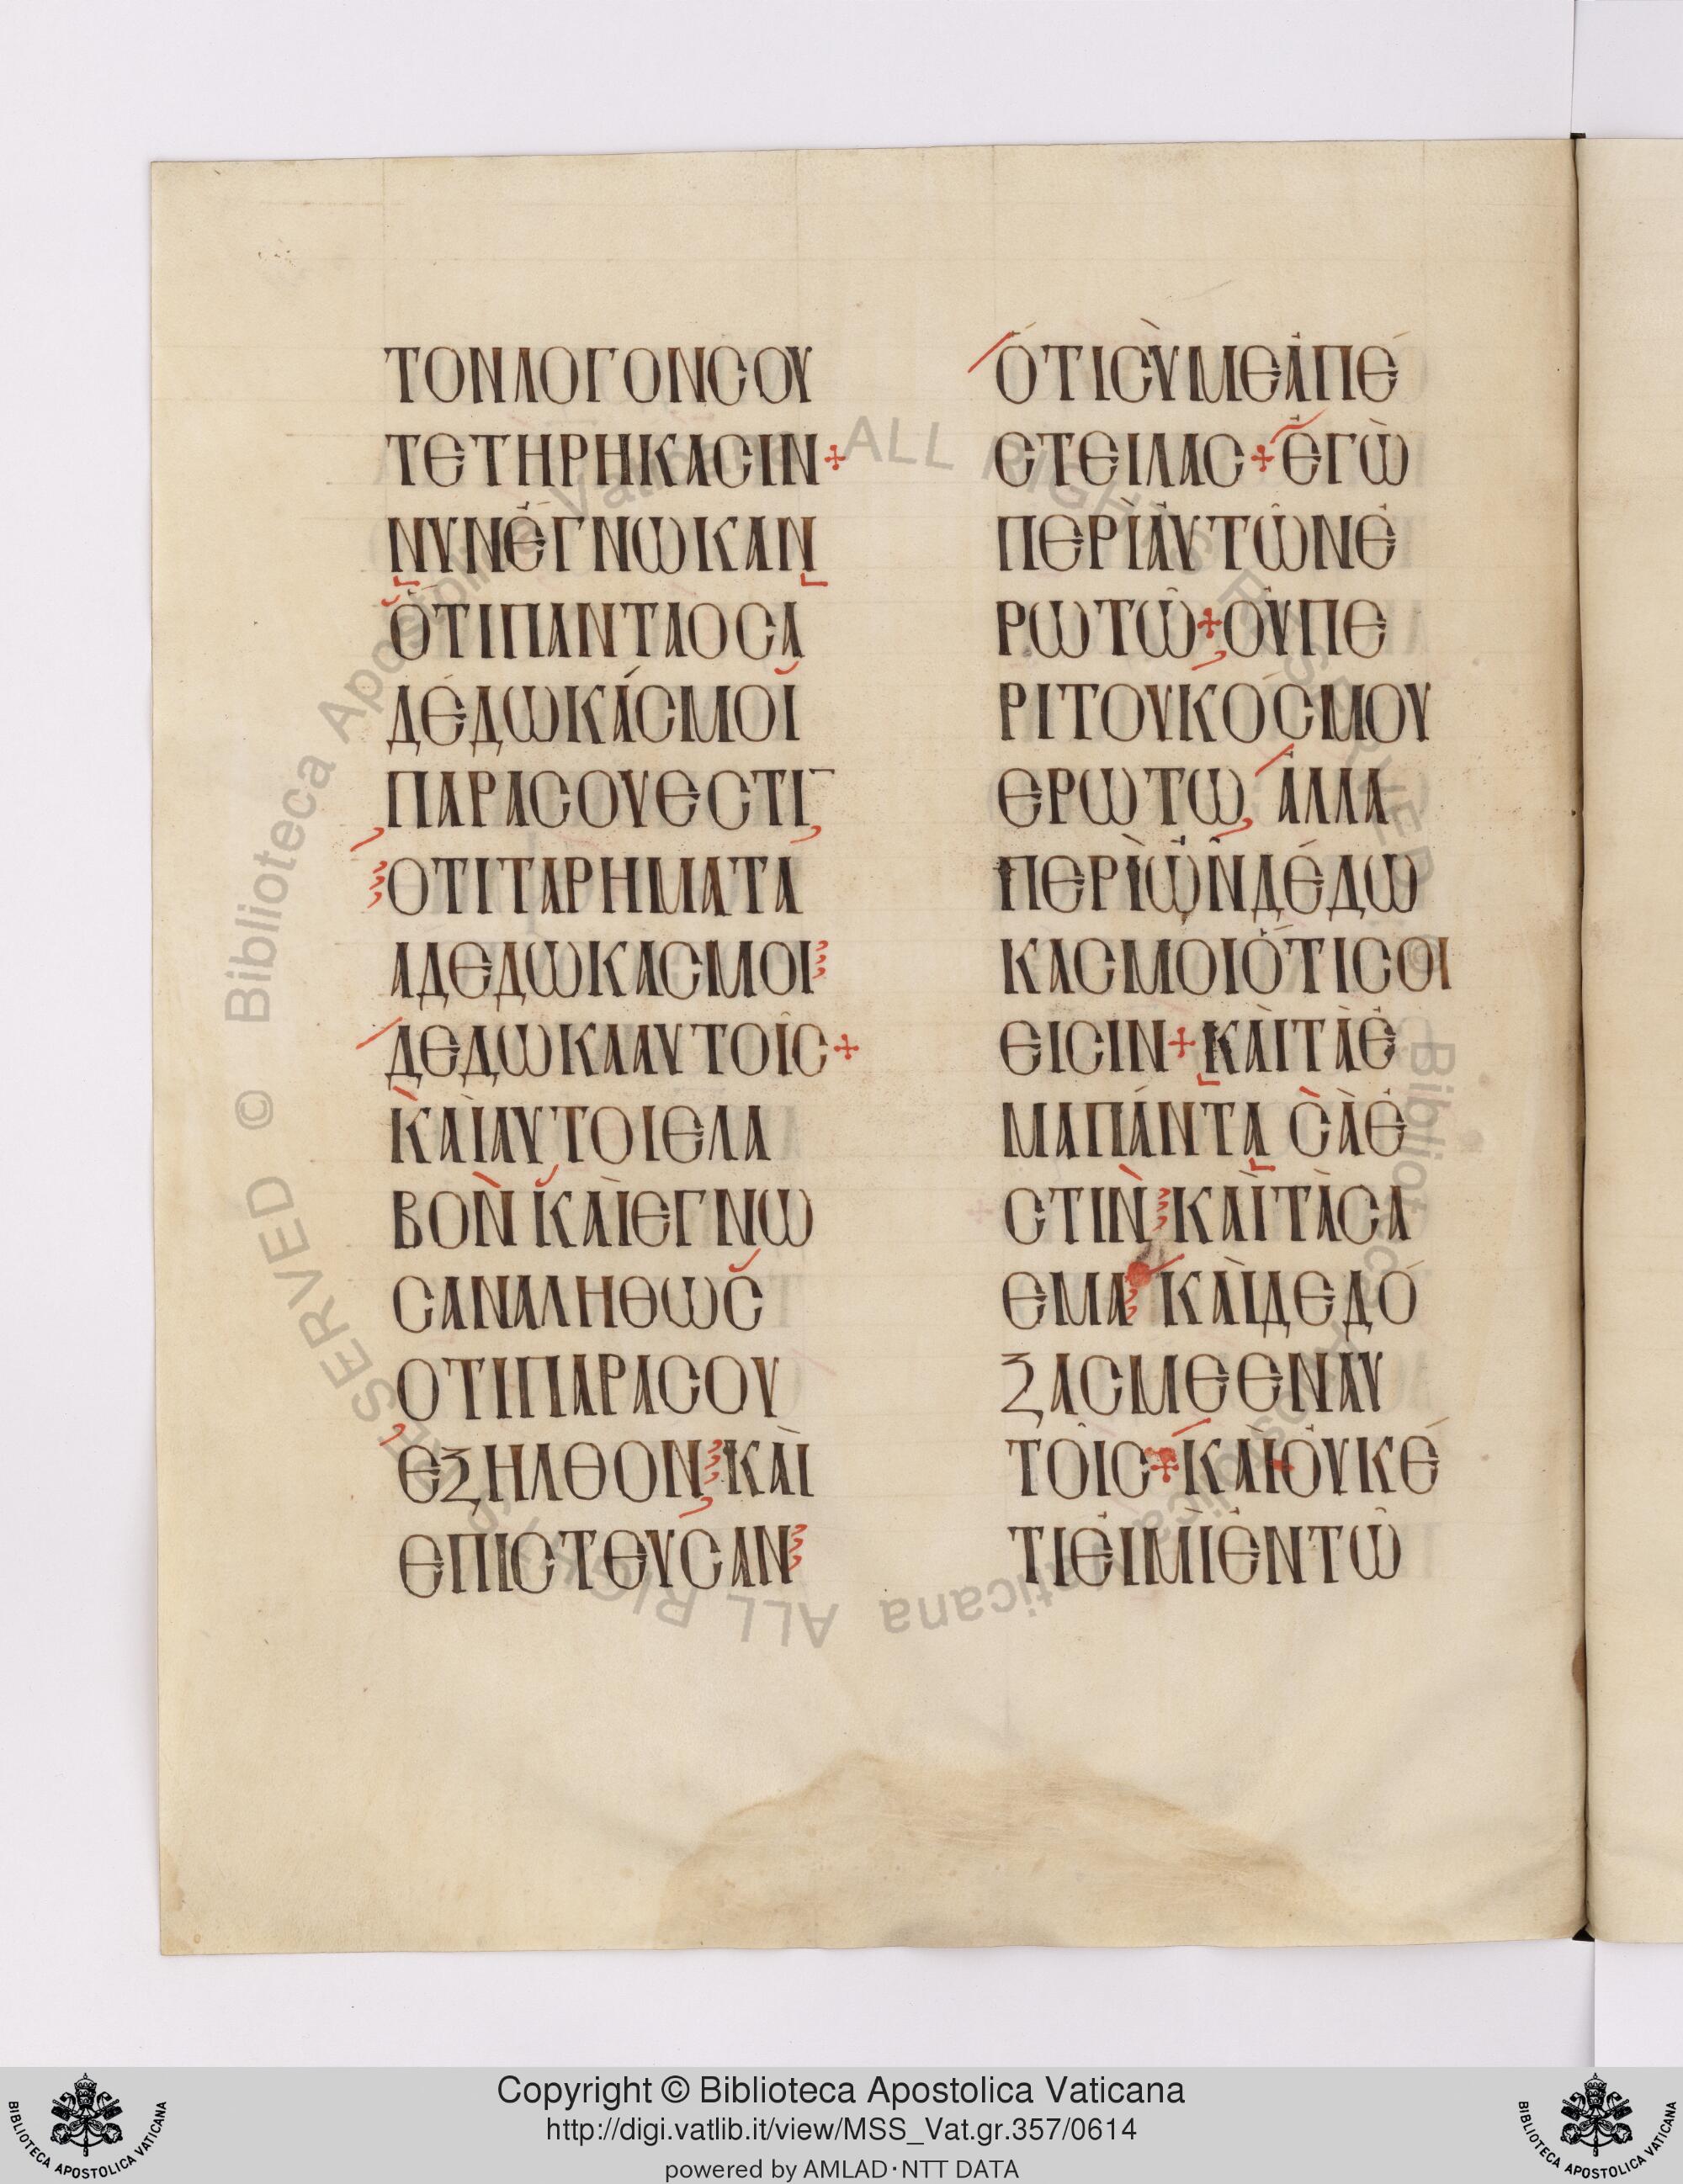 ΤΟΝΛΟΓΟΝϹΟΥ
ΤΕΤΗΡΗΚΑϹΙΝ+
ΝΥΝἘΓΝΩΚΑΝ
ὍΤΙΠΑΝΤΑΟϹΑ
ΔΈΔΩΚΆϹΜΟΪ
ΠΑΡΑϹΟΥΕϹΤΙ¯
ΟΤΙΤΑΡΗΜΑΤΑ
ΑΔΕΔΩΚΑϹΜΟΙ
ΔΕΔΩΚΑΑΥΤΟΙ͂Ϲ+
ΚΑῚΑΥΤΟΙΕΛΑ
ΒΟΝ ΚΑῚΕΓΝΩ
ϹΑΝΑΛΗΘΩϹ
ΟΤΙΠΑΡΑϹΟΥ
ΕΞΗΛΘΟΝ ΚΑῚ
ΕΠΙϹΤΕΥϹΑΝ
ὍΤΙϹῪΜΕἈΠΈ
ϹΤΕΙΛΑϹ+ἘΓῺ
ΠΕΡῚἈΥΤΩ͂ΝἘ
ΡΩΤΩ͂+ΟΥ̓ΠΕ
ΡΙΤΟΥΚΌϹΜΟΥ
ΕΡΩΤΩ, ἈΛΛΑ
ΠΕΡῚὯΝΔΈΔΩ
ΚΑϹΜΟΙὍΤΙϹΟΙ
ΕΙϹΙΝ+ΚΑῚΤᾺἘ
ΜΑΠΆΝΤΑ ϹᾺἘ
ϹΤΙΝ ΚΑῚΤᾺϹΑ
ΕΜΑ ΚΑῚΔΕΔΌ
ΞΑϹΜΕΕΝΑΥ
ΤΟΙ͂Ϲ+ΚΑῚΟΥ̓ΚΈ
ΤΙΕἸΜῚἘΝΤΩ͂
Copyright © Biblioteca Apostolica Vaticana
http://digi.vatlib.it/view/MSS_Vat.gr.357/0614
powered by AMLAD·NTT DATA
BIBLIOTECA APOSTOLICA VATICANA
BIBLIOTECA APOSTOLICA VATICANA